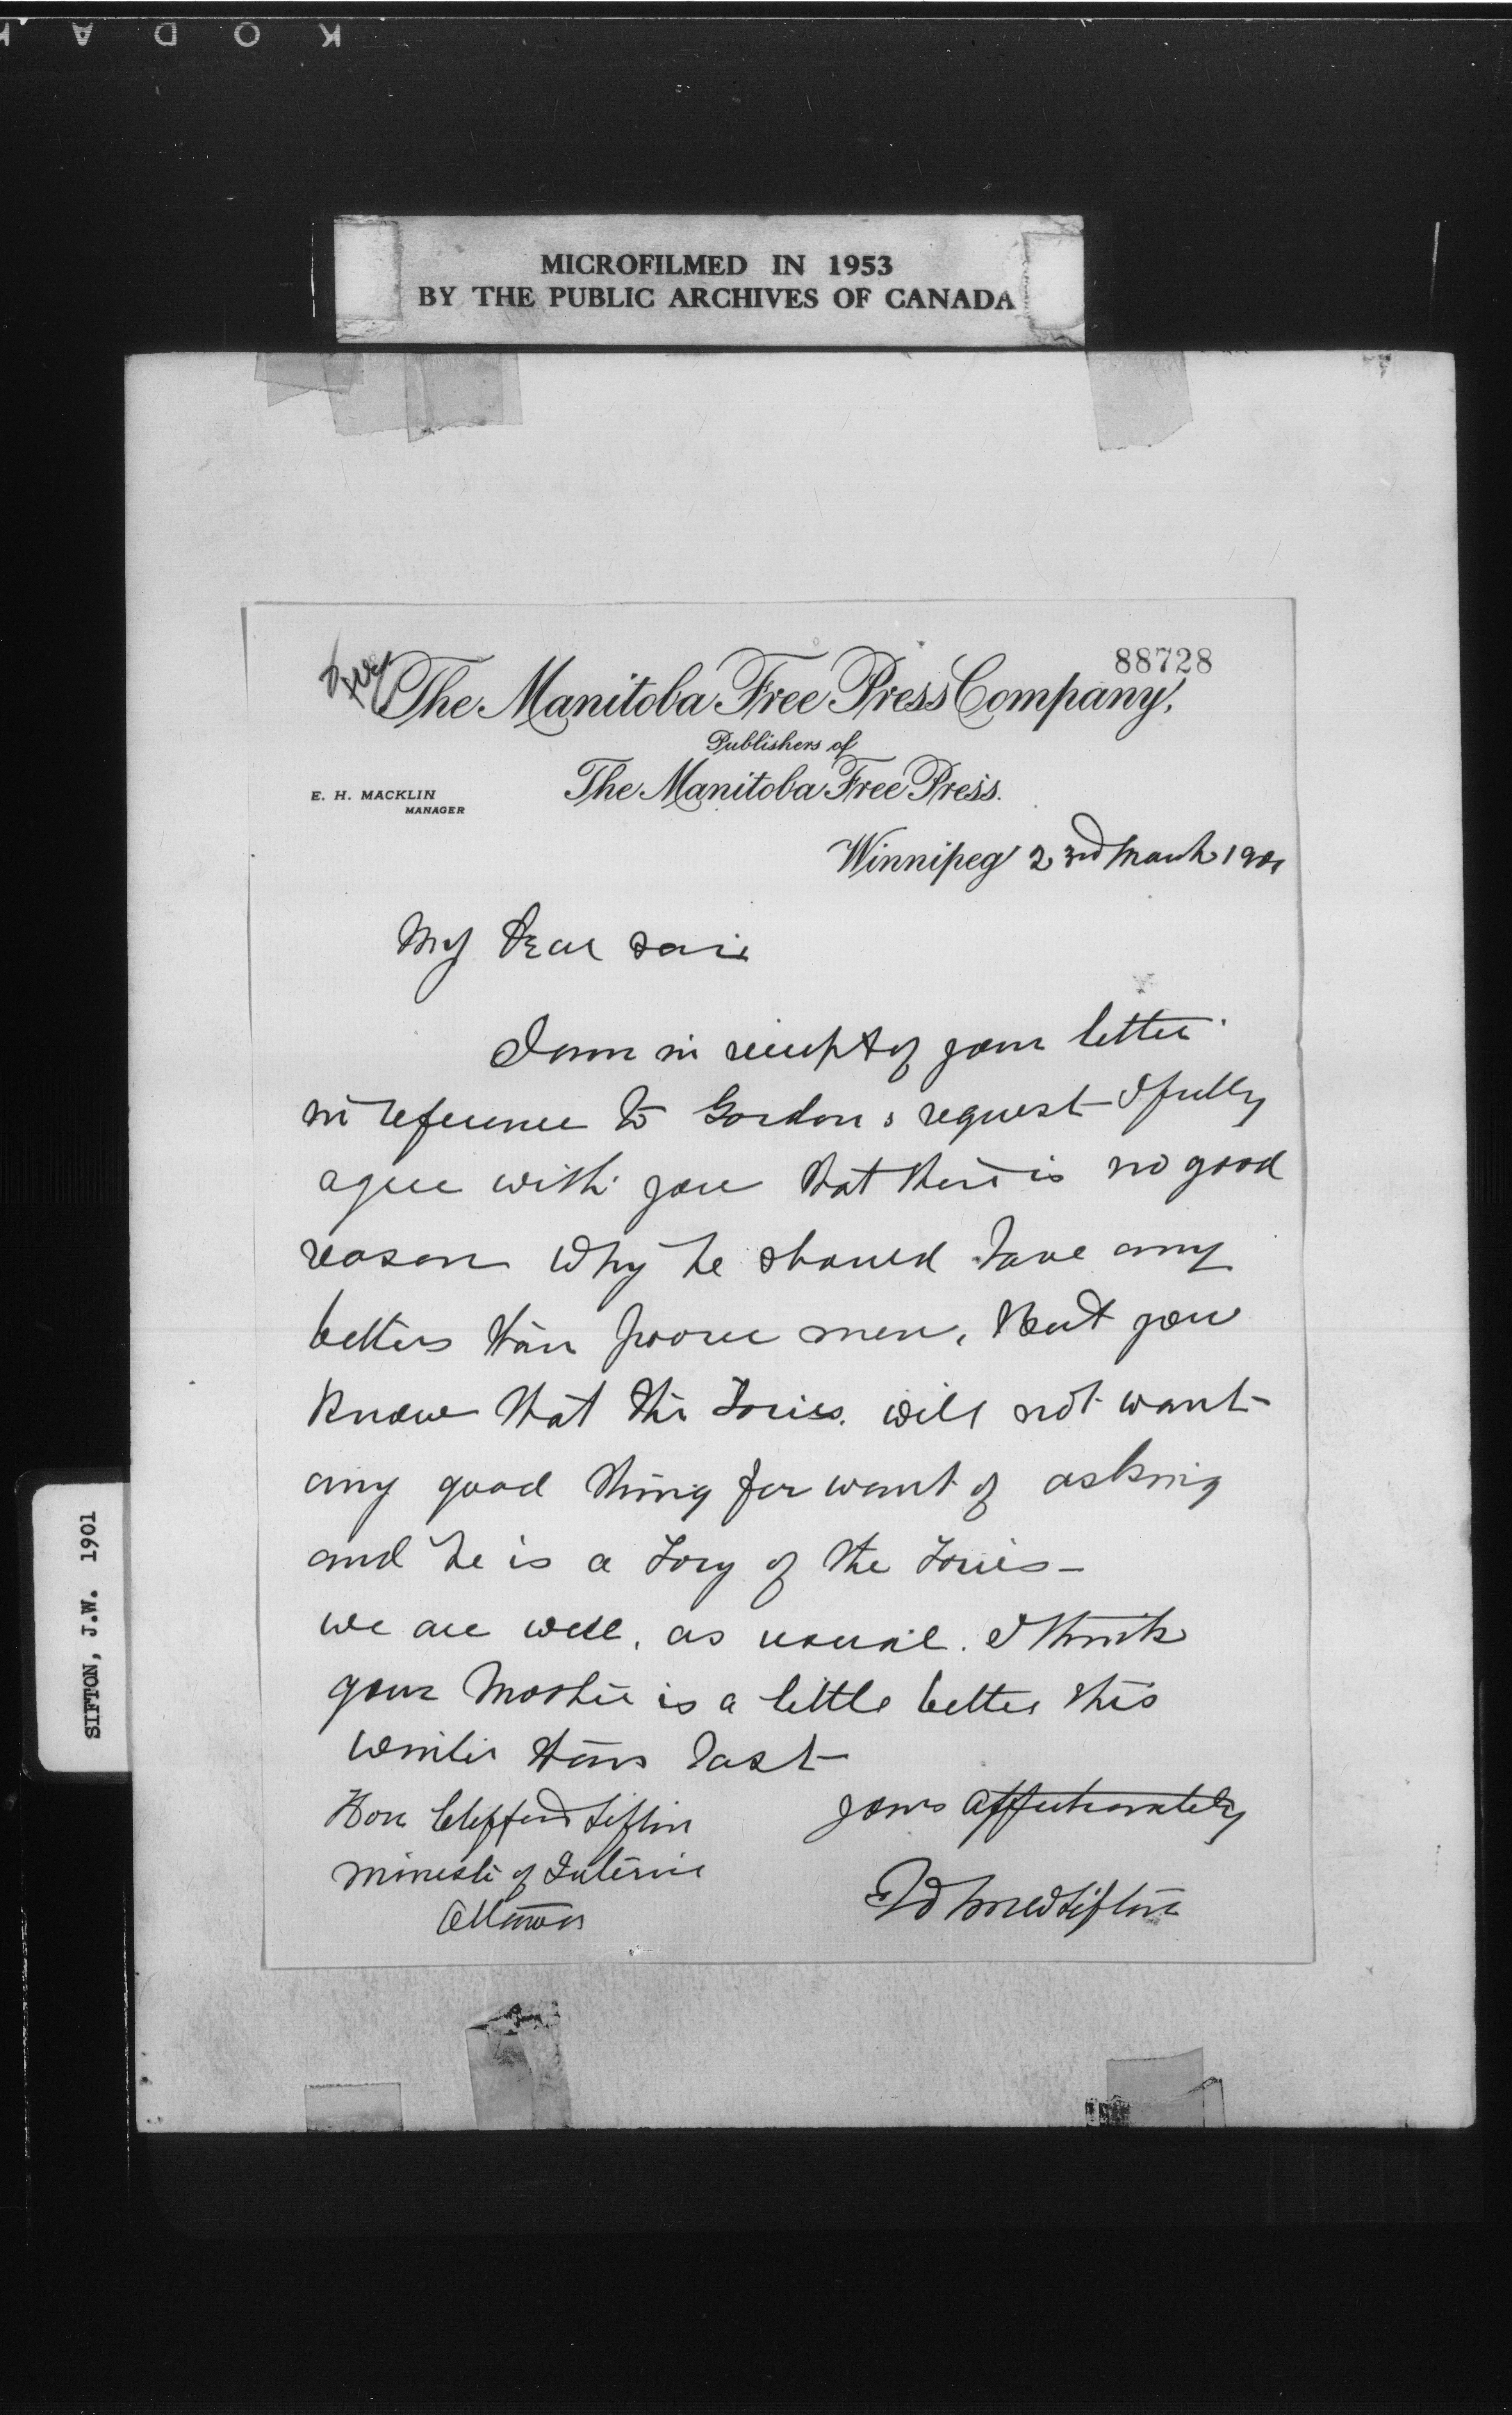 KODAK
MICROFILMED IN 1953
BY THE PUBLIC ARCHIVES OF CANADA
88728
The Manitoba Free Press Company,
Publishers of
The Manitoba Free Press.
E. H. MACKLIN
MANAGER
Winnipeg 23rd March 1901
My Dear
I am in receipt of your letter
in reference to Gordons request I fully
agree with you that there is no good
reason why he should have any
better than poorer men. But you
know that the Tories will not want
any good thing for want of asking
and he is a Tory of the Tories —
we are well, as usual. I think
your Mother is a little better this
winter than last
Yours affectionately
Hon Clifford Sifton
Minister of Interior
Ottawa
Sifton
SIFTON, J.W. 1901